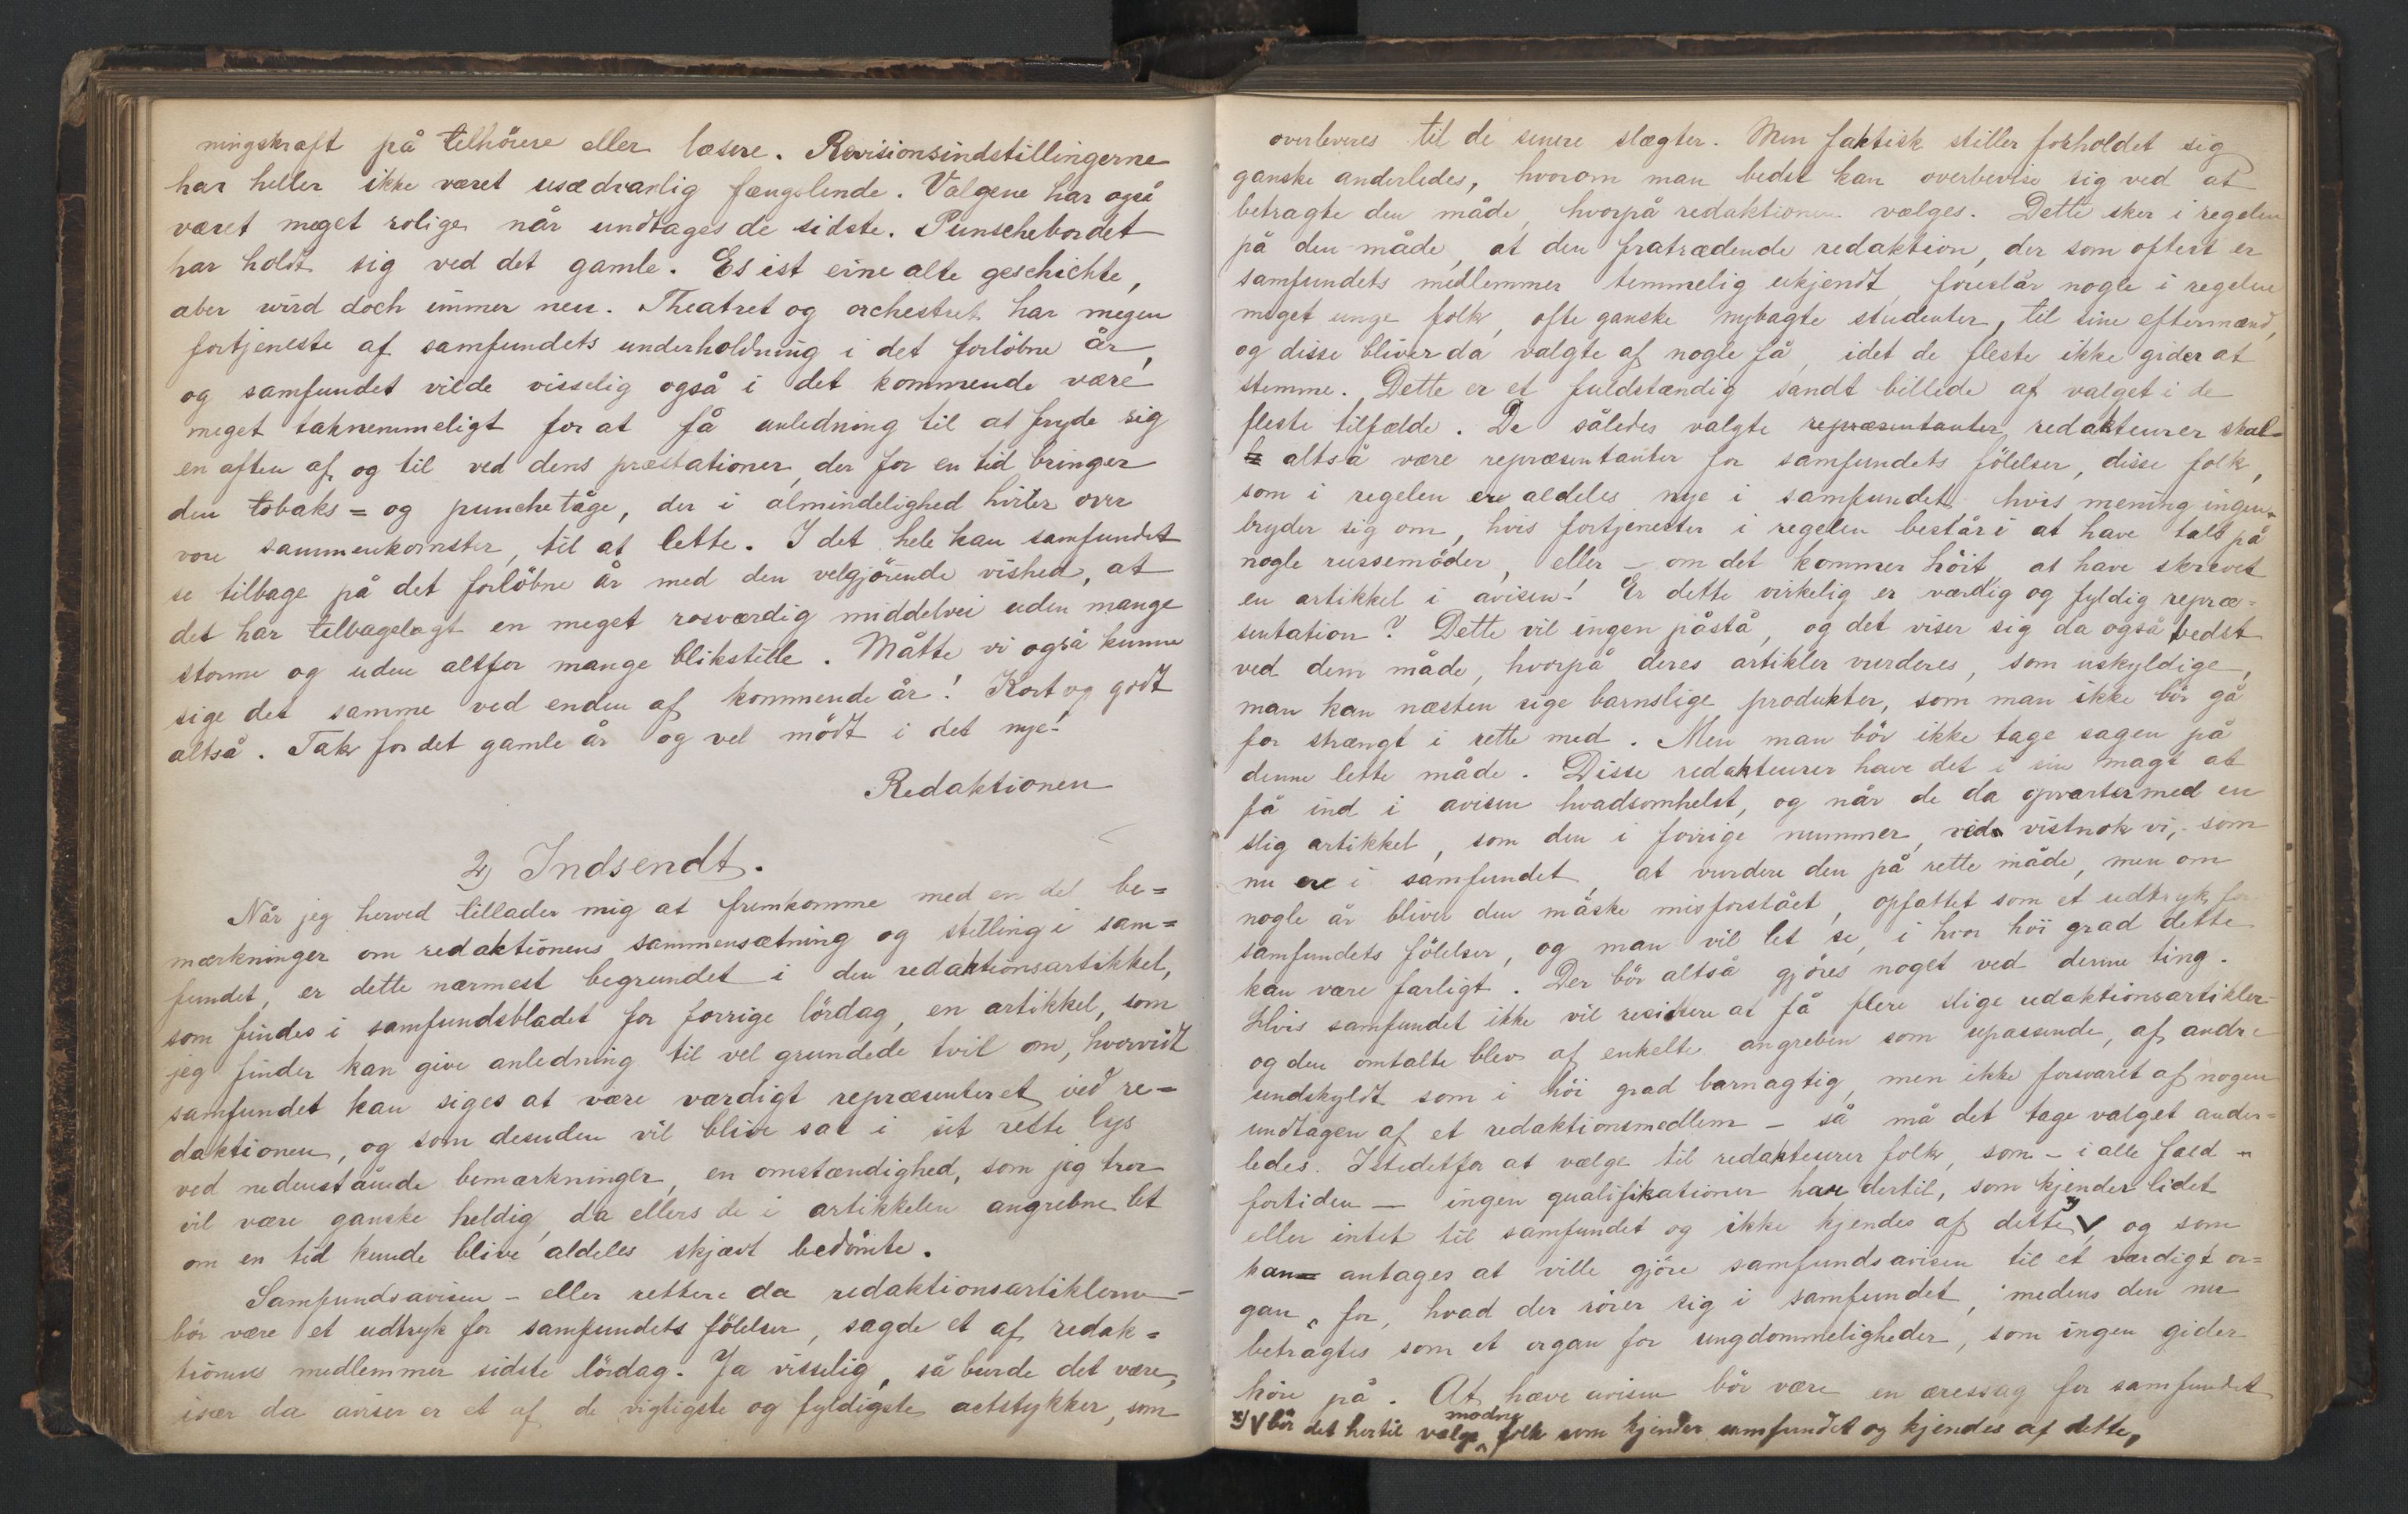 ningskraft på tilhörere eller læsere. Revisionsindstillingerne
har heller ikke været usædvanlig fængslende. Valgene har også
været meget rolige når undtages de sidste. Punschebordet
har holdt sig ved det gamle. Es ist eine alte geschichte,
aber wird doch immer neu. Theatret og orchestret har megen
fortjeneste af samfundets underholdning i det forløbne år,
og samfundet vilde visselig også i det kommende være
meget taknemmeligt for at få anledning til at fryde sig
en aften af og til ved dens præstationer, der for en tid bringer
den tobaks= og punchetåge, der i almindelighed hviler over
vore sammenkomster, til at lette. I det hele kan samfundet
se tilbage på det forløbne år med den velgjørende vished, at
det har tilbagelagt en meget rosværdig middelvei uden mange
storme og uden altfor mange blikstille. Måtte vi også kunne
sige det samme ved enden af kommende år! Kort og godt
altså. Tak for det gamle år og vel mødt i det nye!
Redaktionen
2) Indsendt.
Når jeg herved tillader mig at fremkomme med en del be=
mærkninger om redaktionens sammensætning og stilling i sam=
fundet, er dette nærmest begrundet i den redaktionsartikkel,
som findes i samfundsbladet for forrige lördag, en artikkel, som
jeg finder kan give anledning til vel grundede tvil om, hvorvidt
samfundet kan siges at være værdigt repræsenteret ved re=
daktionen, og som desuden vil blive sat i sit rette lys
ved nedenstående bemærkninger, en omstændighed, som jeg tror
vil være ganske heldig, da ellers de i artikkelen angrebne let
om en tid kunde blive aldeles skjævt bedömte.
Samfundsavisen – eller rettere da redaktionsartiklerne –
bör være et udtryk for samfundets fölelser, sagde et af redak=
tionens medlemmer sidste lördag. Ja visselig, så burde det være,
især da aviser er et af de vigtigste og fyldigste actstykker, som
overleveres til de senere slægter. Men faktisk stiller forholdet sig
ganske anderledes, hvorom man bedst kan overbevise sig ved at
betragte den måde, hvorpå redaktionen vælges. Dette sker i regelen
på den måde, at den fratrædende redaktion, der som oftest er
samfundets medlemmer temmelig ukjendt, foreslår nogle i regelen
meget unge folk, ofte ganske nybagte studenter, til sine eftermænd,
og disse bliver da valgte af nogle få, idet de fleste ikke gider at
stemme. Dette er et fuldstændig sandt billede af valget i de
fleste tilfælde. De således valgte repræsentanter, redakteurer skal
altså være repræsentanter for samfundets fölelser, disse folk,
som i regelen ere aldeles nye i samfundet, hvis mening ingen
bryder sig om, hvis fortjenester i regelen består i at have talt på
nogle russemöder, eller – om det kommer höit at have skrevet
en artikkel i avisen! Er dette virkelig er værdig og fyldig repræ=
sentation? Dette vil ingen påstå, og det viser sig da også bedst
ved dem måde, hvorpå deres artikler vurderes, som uskyldige,
man kan næsten sige barnslige produkter, som man ikke bör gå
for strængt i rette med. Men man bör ikke tage sagen på
denne lette måde. Disse redakteurer have det i sin magt at
få ind i avisen hvadsomhelst, og når de da opvarter med en
slig artikkel, som den i forrige nummer, vide vistnok vi, som
nu ere i samfundet, at vurdere den på rette måde, men om
nogle år bliver den måske misforstået, opfattet som et udtryk for
samfundets fölelser, og man vil let se, i hvor höi grad dette
kan være farligt. Der bör altså gjöres noget ved denne ting.
Hvis samfundet ikke vil resikere at få flere slige redaktionsartikler –
og den omtalte blev af enkelte angreben som upassende, af andre
undskyldt som i höi grad barnagtig, men ikke forsvaret af nogen
undtagen af et redaktionsmedlem – så må det tage valget ander=
ledes. Istedetfor at vælge til redakteurer folk, som – i alle fald
fortiden – ingen qualifikationer have dertil, som kjender lidet
eller intet til samfundet og ikke kjendes af dette x) V og som
kan antages at ville gjöre samfundsavisen til et værdigt or=
gan for, hvad der rörer sig i samfundet, medens den nu
betragtes som et organ for ungdommeligheder, som ingen gider
höre på. At hæve avisen bör være en æressag for samfundet
x) V bör det hertil vælge modne folk som kjender samfundet og kjendes af dette,